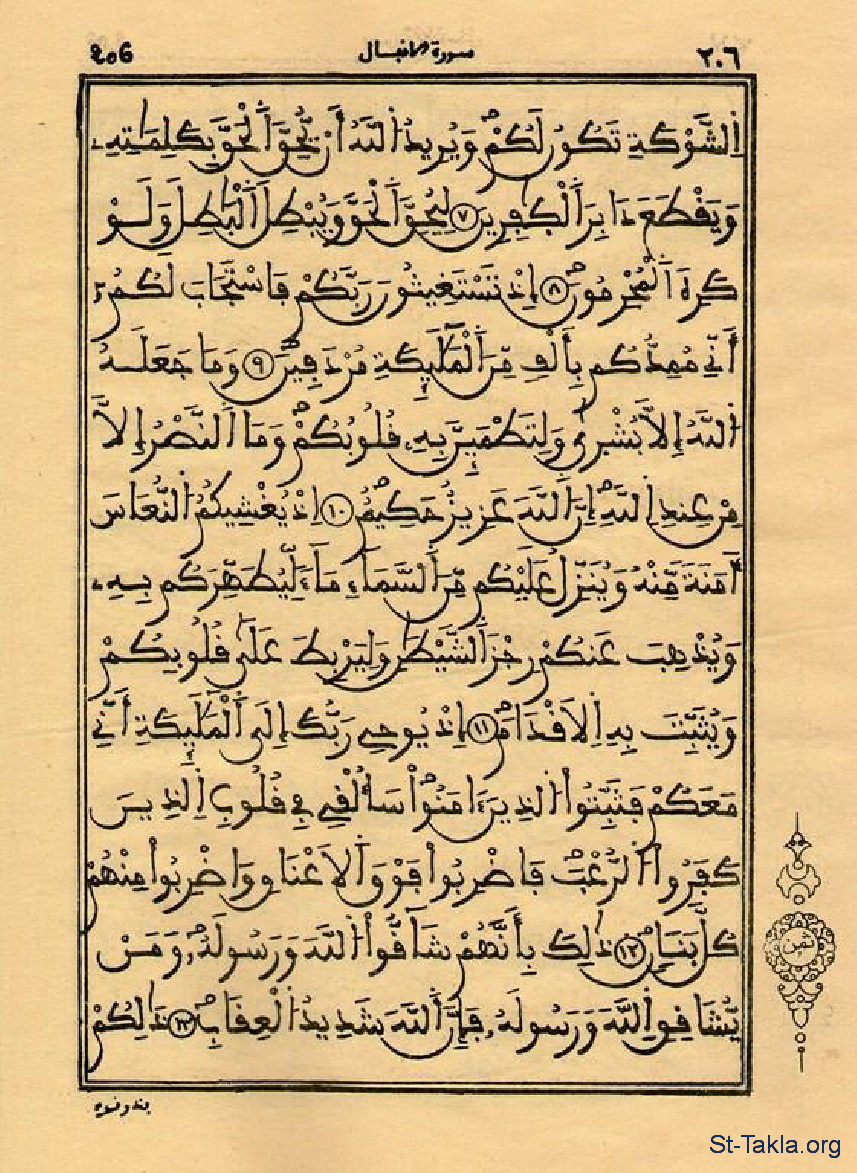 ٢٠٦ سورة الانفال 206
اِ۬لشَّوْكَةِ تَكُونُ لَكُمْۖ وَيُرِيدُ اُ۬للَّهُ أَنْ يُّحِقَّ اَ۬لْحَقَّ بِكَلِمَٰتِهِۦ
وَيَقْطَعَ دَابِرَ اَ۬لْكٰ۪فِرِينَ ٧ لِيُحِقَّ اَ۬لْحَقَّ وَيُبْطِلَ اَ۬لْبَٰطِلَ وَلَوْ
كَرِهَ اَ۬لْمُجْرِمُونَۖ ٨ إِذْ تَسْتَغِيثُونَ رَبَّكُمْ فَاسْتَجَابَ لَكُمُۥٓ
أَنِّے مُمِدُّكُم بِأَلْفٖ مِّنَ اَ۬لْمَلَٰٓئِكَةِ مُرْدَفِينَۖ ٩ وَمَا جَعَلَهُ
اُ۬للَّهُ إِلَّا بُشْر۪ىٰ وَلِتَطْمَئِنَّ بِهِۦ قُلُوبُكُمْۖ وَمَا اَ۬لنَّصْرُ إِلَّا
مِنْ عِندِ اِ۬للَّهِۖ إِنَّ اَ۬للَّهَ عَزِيزٌ حَكِيمٌۖ ١٠ إِذْ يُغْشِيكُمُ اُ۬لنُّعَاسَ
أَمَنَةٗ مِّنْهُ وَيُنَزِّلُ عَلَيْكُم مِّنَ اَ۬لسَّمَآءِ مَآءٗ لِّيُطَهِّرَكُم بِهِۦ
وَيُذْهِبَ عَنكُمْ رِجْزَ اَ۬لشَّيْطَٰنِ وَلِيَرْبِطَ عَلَىٰ قُلُوبِكُمْ
وَيُثَبِّتَ بِهِ اِ۬لَاقْدَامَۖ ١١ إِذْ يُوحِے رَبُّكَ إِلَى اَ۬لْمَلَٰٓئِكَةِ أَنِّے
مَعَكُمْ فَثَبِّتُواْ اُ۬لذِينَ ءَامَنُواْۖ سَأُلْقِے فِے قُلُوبِ اِ۬لذِينَ
كَفَرُواْ اُ۬لرُّعْبَۖ فَاضْرِبُواْ فَوْقَ اَ۬لَاعْنَاقِ وَاضْرِبُواْ مِنْهُمْ
كُلَّ بَنَانٖۖ ١٢ ذَٰلِكَ بِأَنَّهُمْ شَآقُّواْ اُ۬للَّهَ وَرَسُولَهُۥۖ وَمَنْ
يُّشَاقِقِ اِ۬للَّهَ وَرَسُولَهُۥ فَإِنَّ اَ۬للَّهَ شَدِيدُ اُ۬لْعِقَابِۖ ١٣ ذَٰلِكُمْ
ثمن
فذوقوه
St-Takla.org